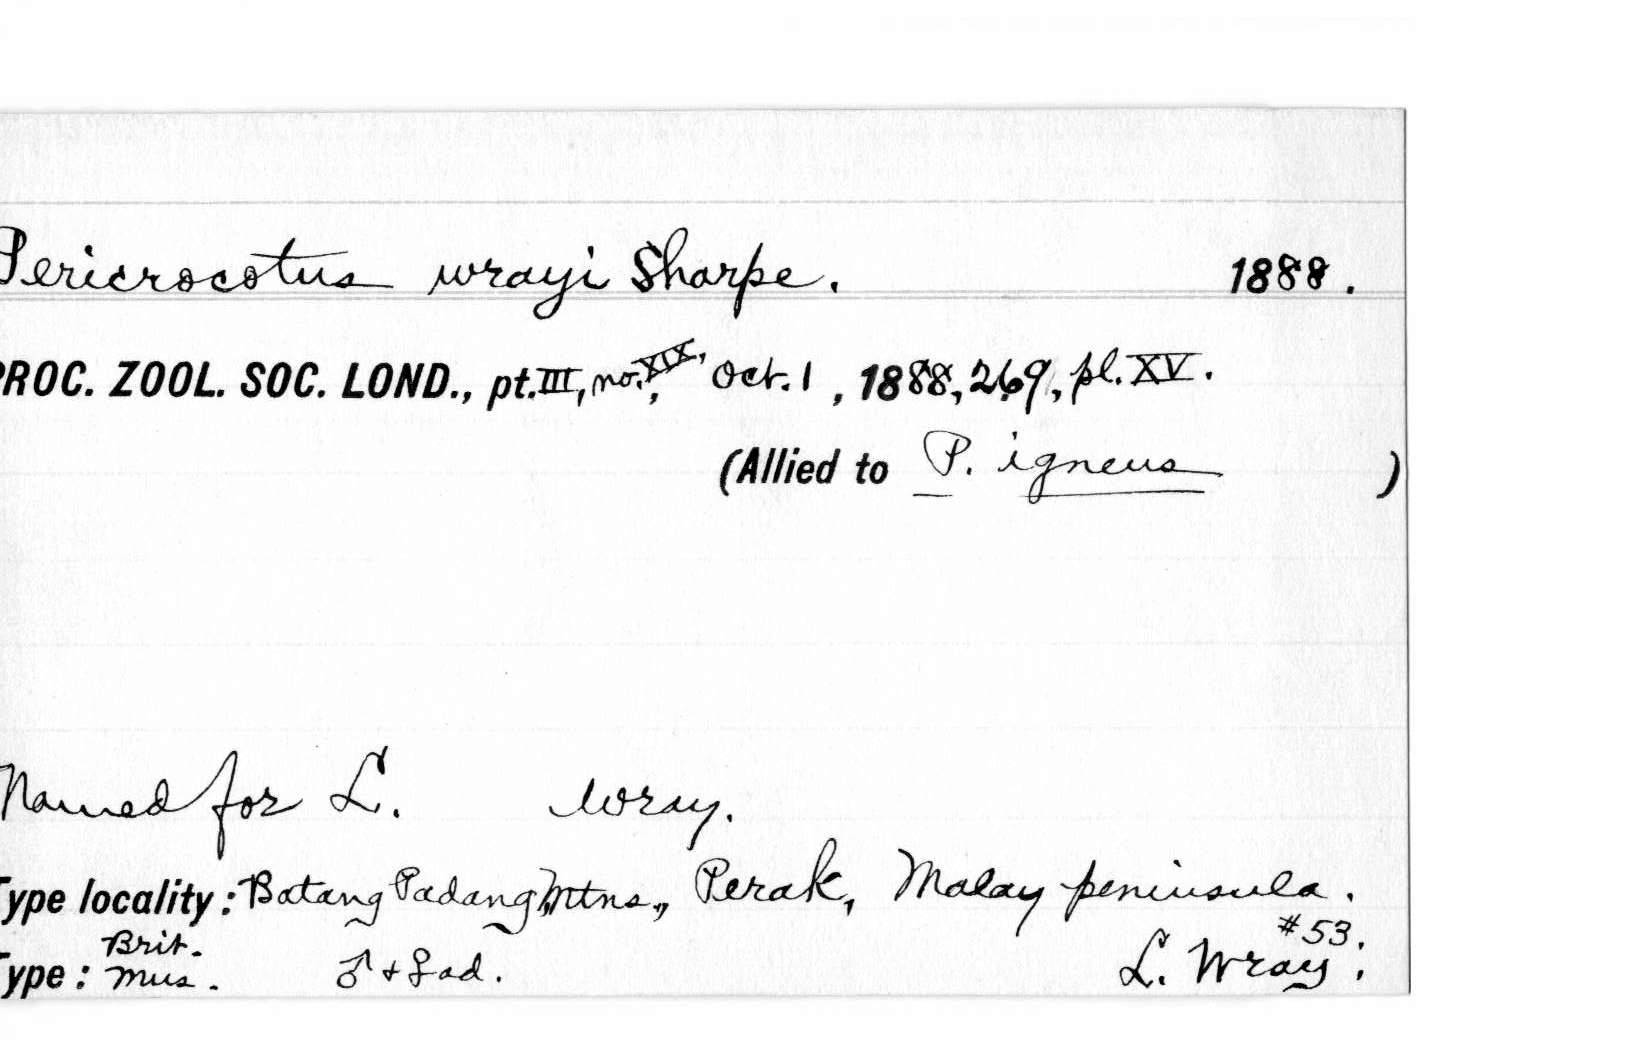 Pericrocotus wrayi Sharpe. 1888.
PROC. ZOOL. SOC. LOND., pt. III, no. XIX, Oct. 1, 1888, 269, pl. XV.
(Allied to P. igneus )
Named for L. Wray.
Type locality: Batang Padang Mtns., Perak, Malay peninsula.
#53.
Type: Brit. Mus. ♂ + ♀ ad. L. Wray.